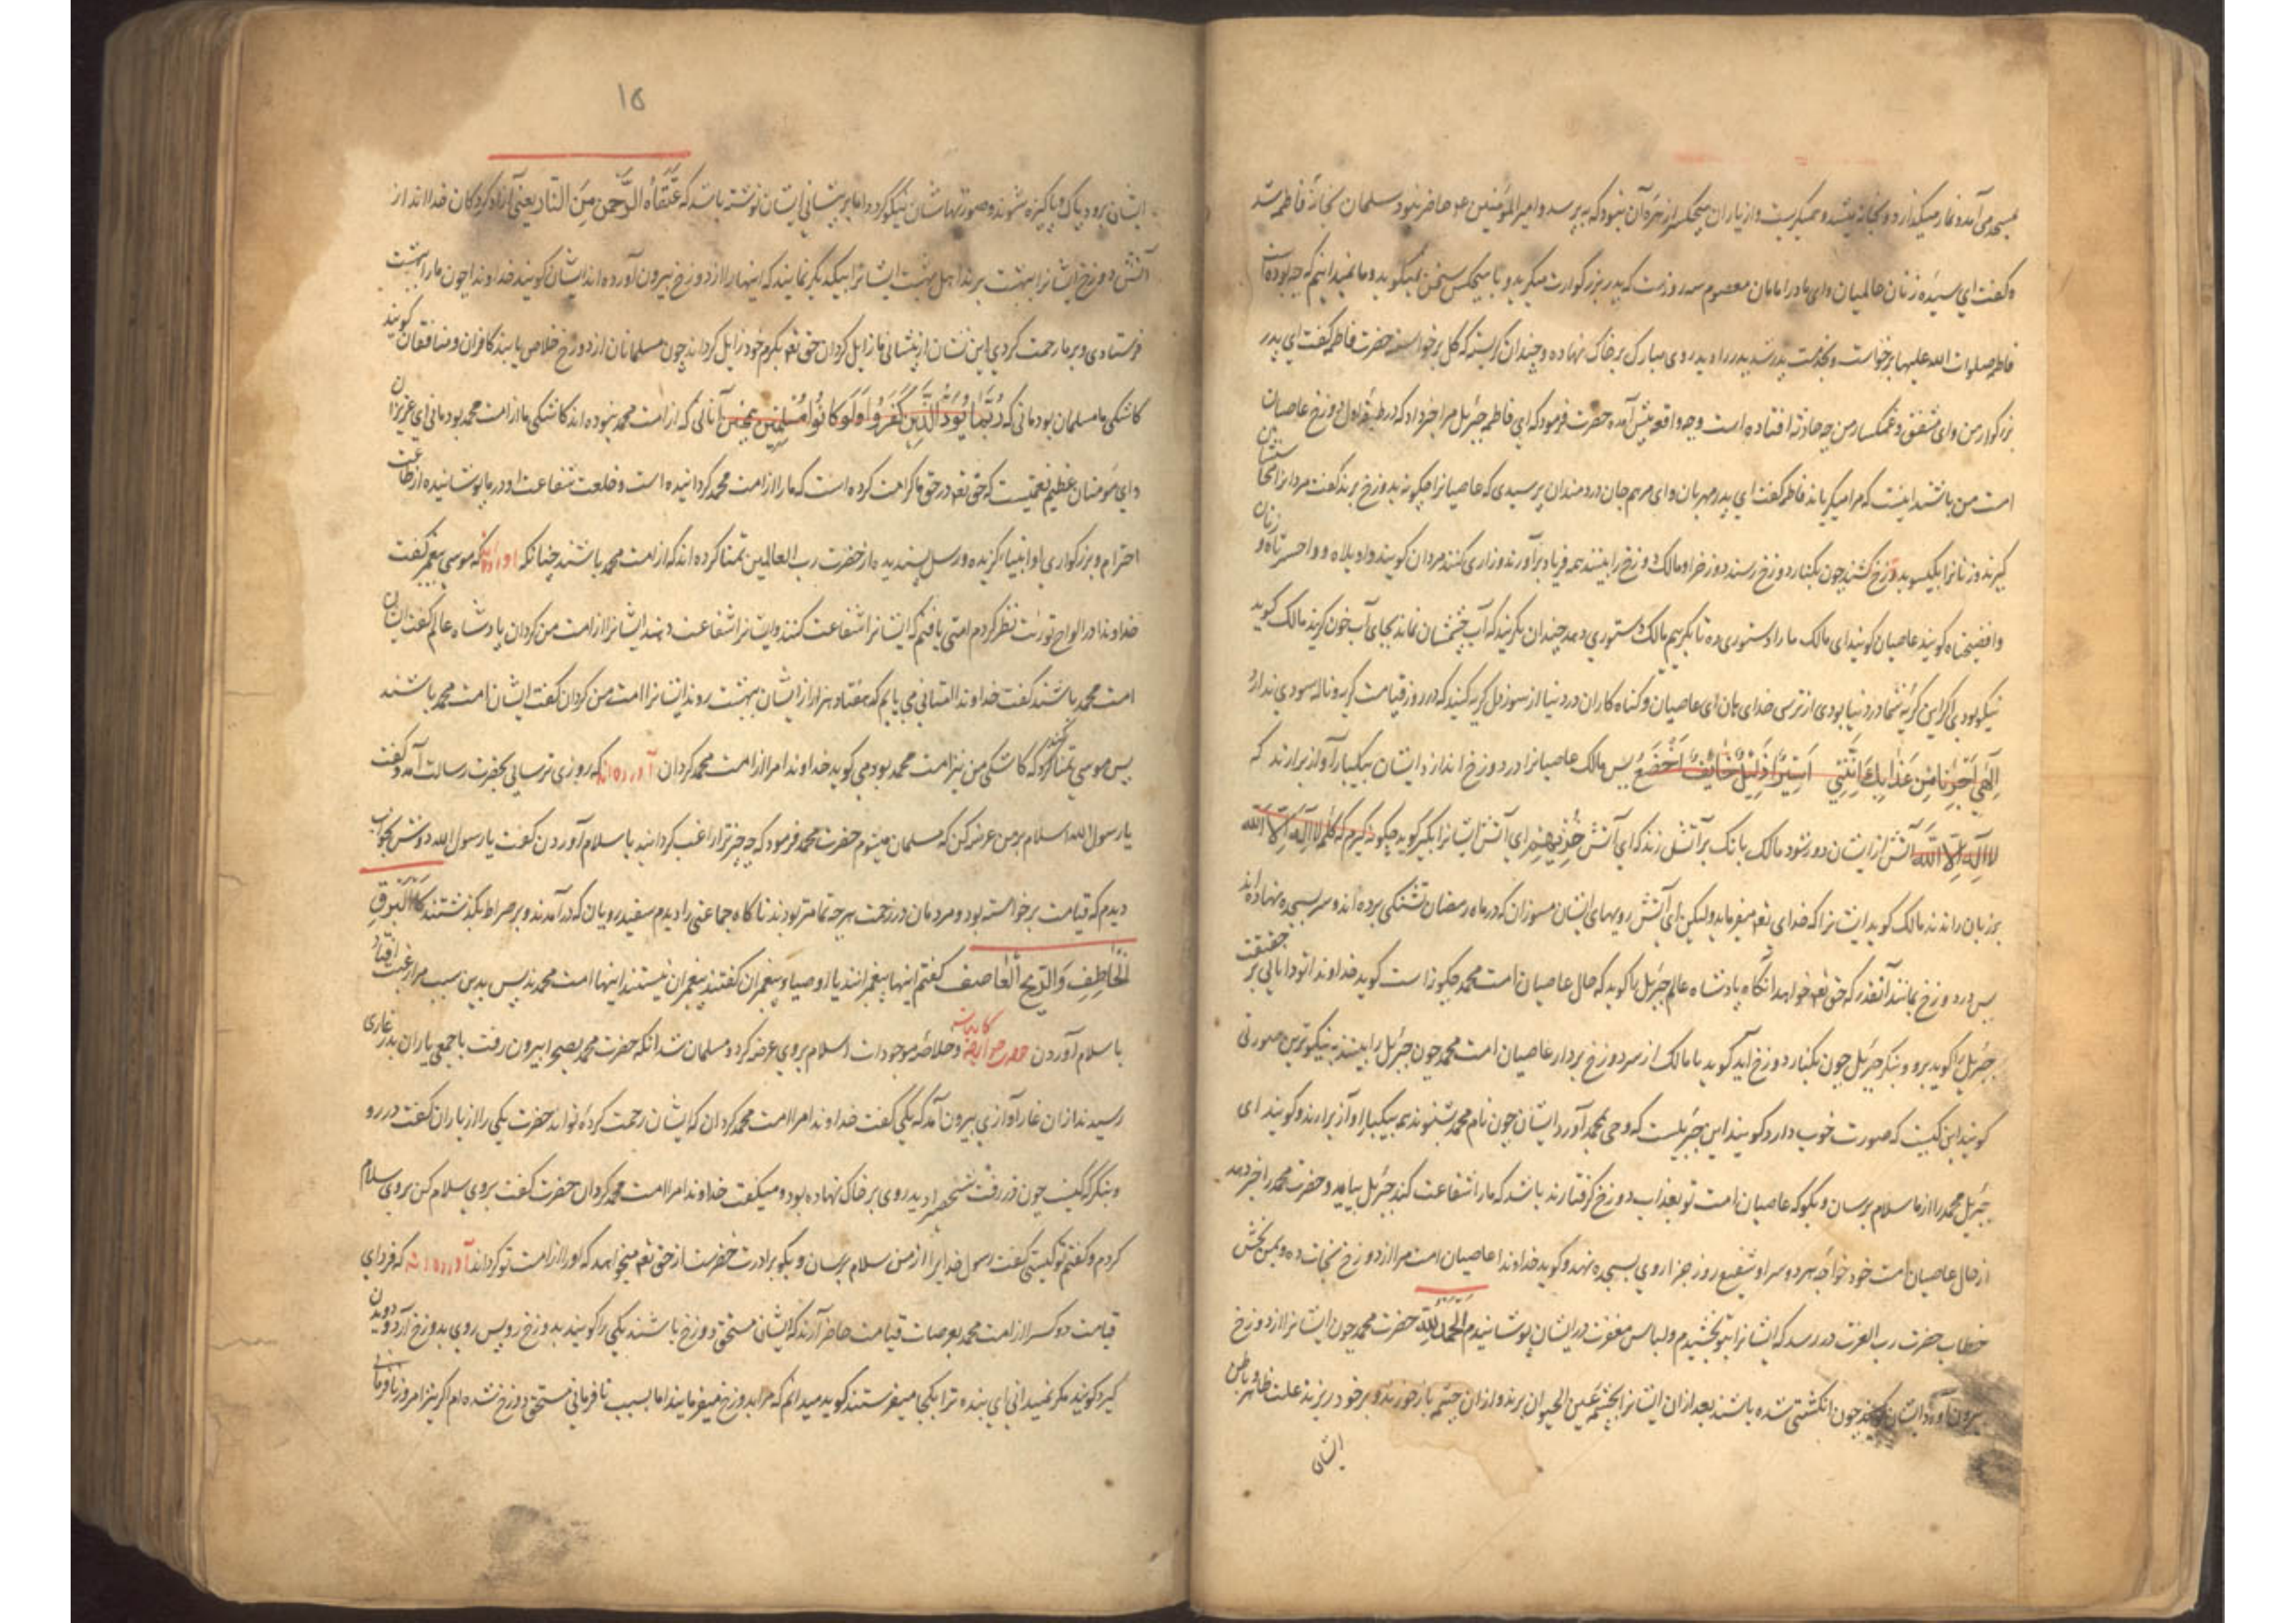 بمسجد می آمد و نماز میگذارد و بخانه میشد و میگریست و از یاران هیچکس را زهره آن نبود که بپرسد و امیرالمؤمنین عو حاضر نبود سلمان بخانه فاطمه شد
و گفت ای سیده زنان عالمیان و ای مادر امامان معصوم سه روزست که پدر بزرگوارت میگرید و با هیچکس سخن نمیگوید و ما نمیدانیم که چه بوده است
فاطمه صلوات الله علیها برخواست و بخدمت پدر شد پدر را دید روی مبارک بر خاک نهاده و چندان گریسته که گل برخواسته حضرت فاطمه گفت ای پدر
بزرگوار من و ای مشفق و غمگسار من چه حادثه افتاده است و چه واقعه پیش آمده حضرت فرمود که ای فاطمه جبرئیل مرا خبر داد که در طبقه اول دوزخ عاصیان
امت من باشند اینست که مرا میگریاند فاطمه گفت ای پدر مهربان و ای مرهم جان دردمندان پرسیدی که عاصیانرا چگونه بدوزخ برند گفت مردانرا محاسن
گیرند و زنانرا بگیسو بدوزخ کشند چون بکنار دوزخ رسند دوزخ را و مالک دوزخ را ببینند همه فریاد برآورند و زاری کنند مردان گویند واویلاه و واحسرتاه و زنان
وافضیحتاه گویند عاصیان گویند ای مالک ما را دستوری ده تا بگرییم مالک دستوری دهد چندان بگریند که آب چشمشان نماند بجای آب خون گریند مالک گوید
نیکو بودی اگر این گریه شما در دنیا بودی از ترس خدای هان ای عاصیان و گناه کاران در دنیا از سوز دل گریه کنید که در روز قیامت گریه و ناله سودی ندارد
الهی اجرنا من عذابک اننی اسیر ذلیل خائف اخضع پس مالک عاصیانرا در دوزخ اندازد ایشان بیکبار آواز برارند که
لا اله الا الله آتش از ایشان دور شود مالک بانک بر آتش زند که ای آتش خذیهم ای آتش ایشانرا بگیر گوید چگونه گیرم که کلمه لا اله الا الله
بر زبان راندند مالک گوید ایشانرا که خدای تعه میفرماید ولیکن ای آتش رویهای ایشان مسوزان که در ماه رمضان تشنگی برده اند و سر بسجده نهاده اند
پس در دوزخ بمانند آنقدر که حق تعه خواهد آنگاه پادشاه عالم جبرئیل را گوید که حال عاصیان امت محمد چگونه است گوید خداوندا تو دانایی بر حقیقت
جبرئیل را گوید برو و بنگر جبرئیل چون بکنار دوزخ اید گوید با مالک از سر دوزخ بردار عاصیان امت محمد چون جبرئیل را ببینند به نیکوترین صورتی
گویند این کیست که صورت خوب دارد گویند این جبرئیلست که وحی بمحمد آورد ایشان چون نام محمد بشنوند همه بیکبار او آواز برارند و گویند ای
جبرئیل محمد را از ما سلام برسان و بگو که عاصیان امت تو بعذاب دوزخ گرفتارند باشد که ما را شفاعت کند جبرئیل بیاید و حضرت محمد را خبر دهد
از حال عاصیان امت خود خواجه هر دو سرا و شفیع روز جزا روی بسجده نهد و گوید خداوندا عاصیان امت مرا از دوزخ نجات ده و بمن بخش
خطاب حضرت رب العزت در رسد که ایشانرا بتو بخشیدم و لباس مغفرت در ایشان پوشانیدم الحمد لله حضرت محمد چون ایشانرا از دوزخ
بیرون آورد ایشان چون انگشتی شده باشند بعد از ان ایشانرا بچشمه عین الحیوان برند و ازان چشمه باز خورند و بر خود ریزند علت ظاهر و باطن
ایشان
۱۵
ایشان برود پاک و پاکیزه شوند و صورتهاشان نیکو گردد اما بر پیشانی ایشان نوشته باشد که عتقاه الرحمن من النار یعنی آزاد کردگان خدااند از
آتش دوزخ ایشانرا ببهشت برند اهل بهشت ایشانرا بیکدیگر نمایند که اینها را از دوزخ بیرون آورده اند ایشان گویند خداوندا چون ما را ببهشت
فرستادی و بر ما رحمت کردی این نشان از پیشانی ما زایل گردان حق تعه بکرم خود زایل گرداند چون مسلمانان از دوزخ خلاص یابند کافران و منافقان گویند
کاشکی ما مسلمان بودمانی که ربما یود الذین کفروا لو کانوا مسلمین یعنی آنانی که از امت محمد نبوده اند کاشکی ما از امت محمد بودمانی ای عزیزان
و ای مؤمنان عظیم نعمتیست که حق تعه در حق ما کرامت کرده است که ما را از امت محمد گردانیده است و خلعت شفاعت او در ما پوشانیده از طاعت
احترام و بزرگواری او انبیاء گزیده و رسل پسندیده از حضرت رب العالمین تمنا کرده اند که از امت محمد باشند چنانکه آورده اند که موسی پیغمبر گفت
خداوندا در الواح توریت نظر کردم امتی یافتم که ایشانرا شفاعت کنند و ایشانرا شفاعت دهند ایشانرا از امت من گردان پادشاه عالم گفت ایشان
امت محمد باشند گفت خداوندا امتی می یابم که هفتاد هزار از ایشان ببهشت روند ایشانرا امت من گردان گفت ایشان امت محمد باشند
پس موسی تمنا کرد که کاشکی من نیز امت محمد بودمی گوید خداوندا مرا از امت محمد گردان آورده اند که روزی ترسایی بحضرت رسالت آمد و گفت
یا رسول الله اسلام بر من عرض کن که مسلمان میشوم حضرت محمد فرمود که چه چیز ترا راغب گردانید با سلام آوردن گفت یا رسول الله دوش بخواب
دیدم که قیامت برخواسته بود و مردمان در زحمت هر چه تمامتر بودند ناگاه جماعتی را دیدم سفید رویان که درآمدند و بر صراط بگذشتند کالبرق
الخاطف والریح العاصف گفتم اینها پیغمبرانند یا اوصیاء پیغمبران گفتند پیغمبران نیستند اینها امت محمدند پس بدین سبب مرا رغبت افتاد
با سلام آوردن و خلاصه موجودات اسلام بروی عرضه کرد و مسلمان شد انکه حضرت محمد بصحرا بیرون رفت با جمعی یاران بدر غاری
رسیدند ازان غار آوازی بیرون آمد که یکی گفت خداوندا مرا امت محمد گردان که ایشان رحمت کرده تواند حضرت یکی را از یاران گفت در رو
و بنگر که کیست چون در رفت شخصی را دید روی بر خاک نهاده بود و میگفت خداوندا مرا امت محمد گردان حضرت گفت بروی سلام کن بروی سلام
کردم و گفتم تو کیستی گفت رسول خدا را از من سلام برسان و بگو برادرت خضرست از حق تعه میخواهد که او را از امت تو گرداند آورده اند که فردای
قیامت دو کس را از امت محمد بعرصات قیامت حاضر آرند که ایشان مستحق دوزخ باشند یکی را گویند بدوزخ رو پس روی بدوزخ آرد و دویدن
گیرد گویند مگر نمیدانی ای بنده ترا بکجا میفرستند گوید میدانم که مرا بدوزخ میفرمایند اما بسبب نافرمانی مستحق دوزخ شده ام اگر نیز امروز نافرمانی